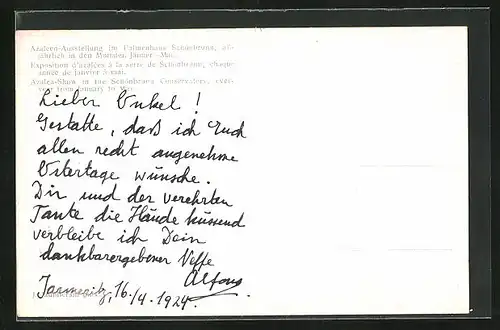 Azaleen-Ausstellung im Palmenhaus Schönbrunn, all-
jährlich in den Monaten Jänner–Mai.
Exposition d'azalées à la serre de Schönbrunn, chaque
année de janvier à mai.
Azalea-Show in the Schönbrunn Conservatory, every
year from January to May.
Lieber Onkel!
Gestatte, daß ich Euch
allen recht angenehme
Ostertage wünsche.
Dir und der verehrten
Tante die Hände küssend
verbleibe ich Dein
dankbarergebener Neffe
Alfons
Jarmeritz, 16./4. 1924.